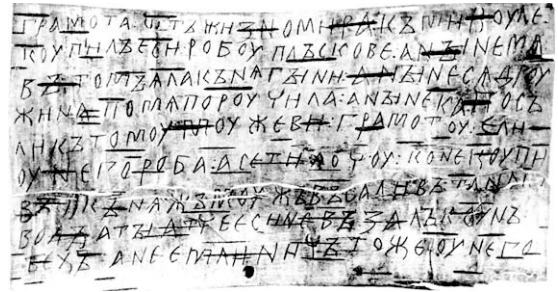 ГРАМОТА:ѠТЪЖИЗНОМИРАКЪМИКОУЛЕ:
КОУПИЛЪЕСИ:РОБОУ:ПЛЪСКОВЕ:АНЫНЕМѦ
ВЪТОМЪѦЛАКЪНѦГЫНИ:АНЫНЕСѦДРОУ
ЖИНАПОМѦПОРОУЧИЛА:АНЫНЕКАПОСЪ
ЛИКЪТОМОУМОУЖЕВИ:ГРАМОТОУ:ЕЛИ
ОУНЕГОРОБА:АСЕТИХОЧОУ:КОНЕКОУПИ
ВЪИКЪНѦЖЪМОУЖЪВЪСАДИВЪТАНАСЪ
ВОДЫАТЫАТЧЕЕСИНЕВЪЗАЛЪКОУНЪ
ТЕХЪАНЕЕМЛИНИЧЪТОЖЕОУНЕГО